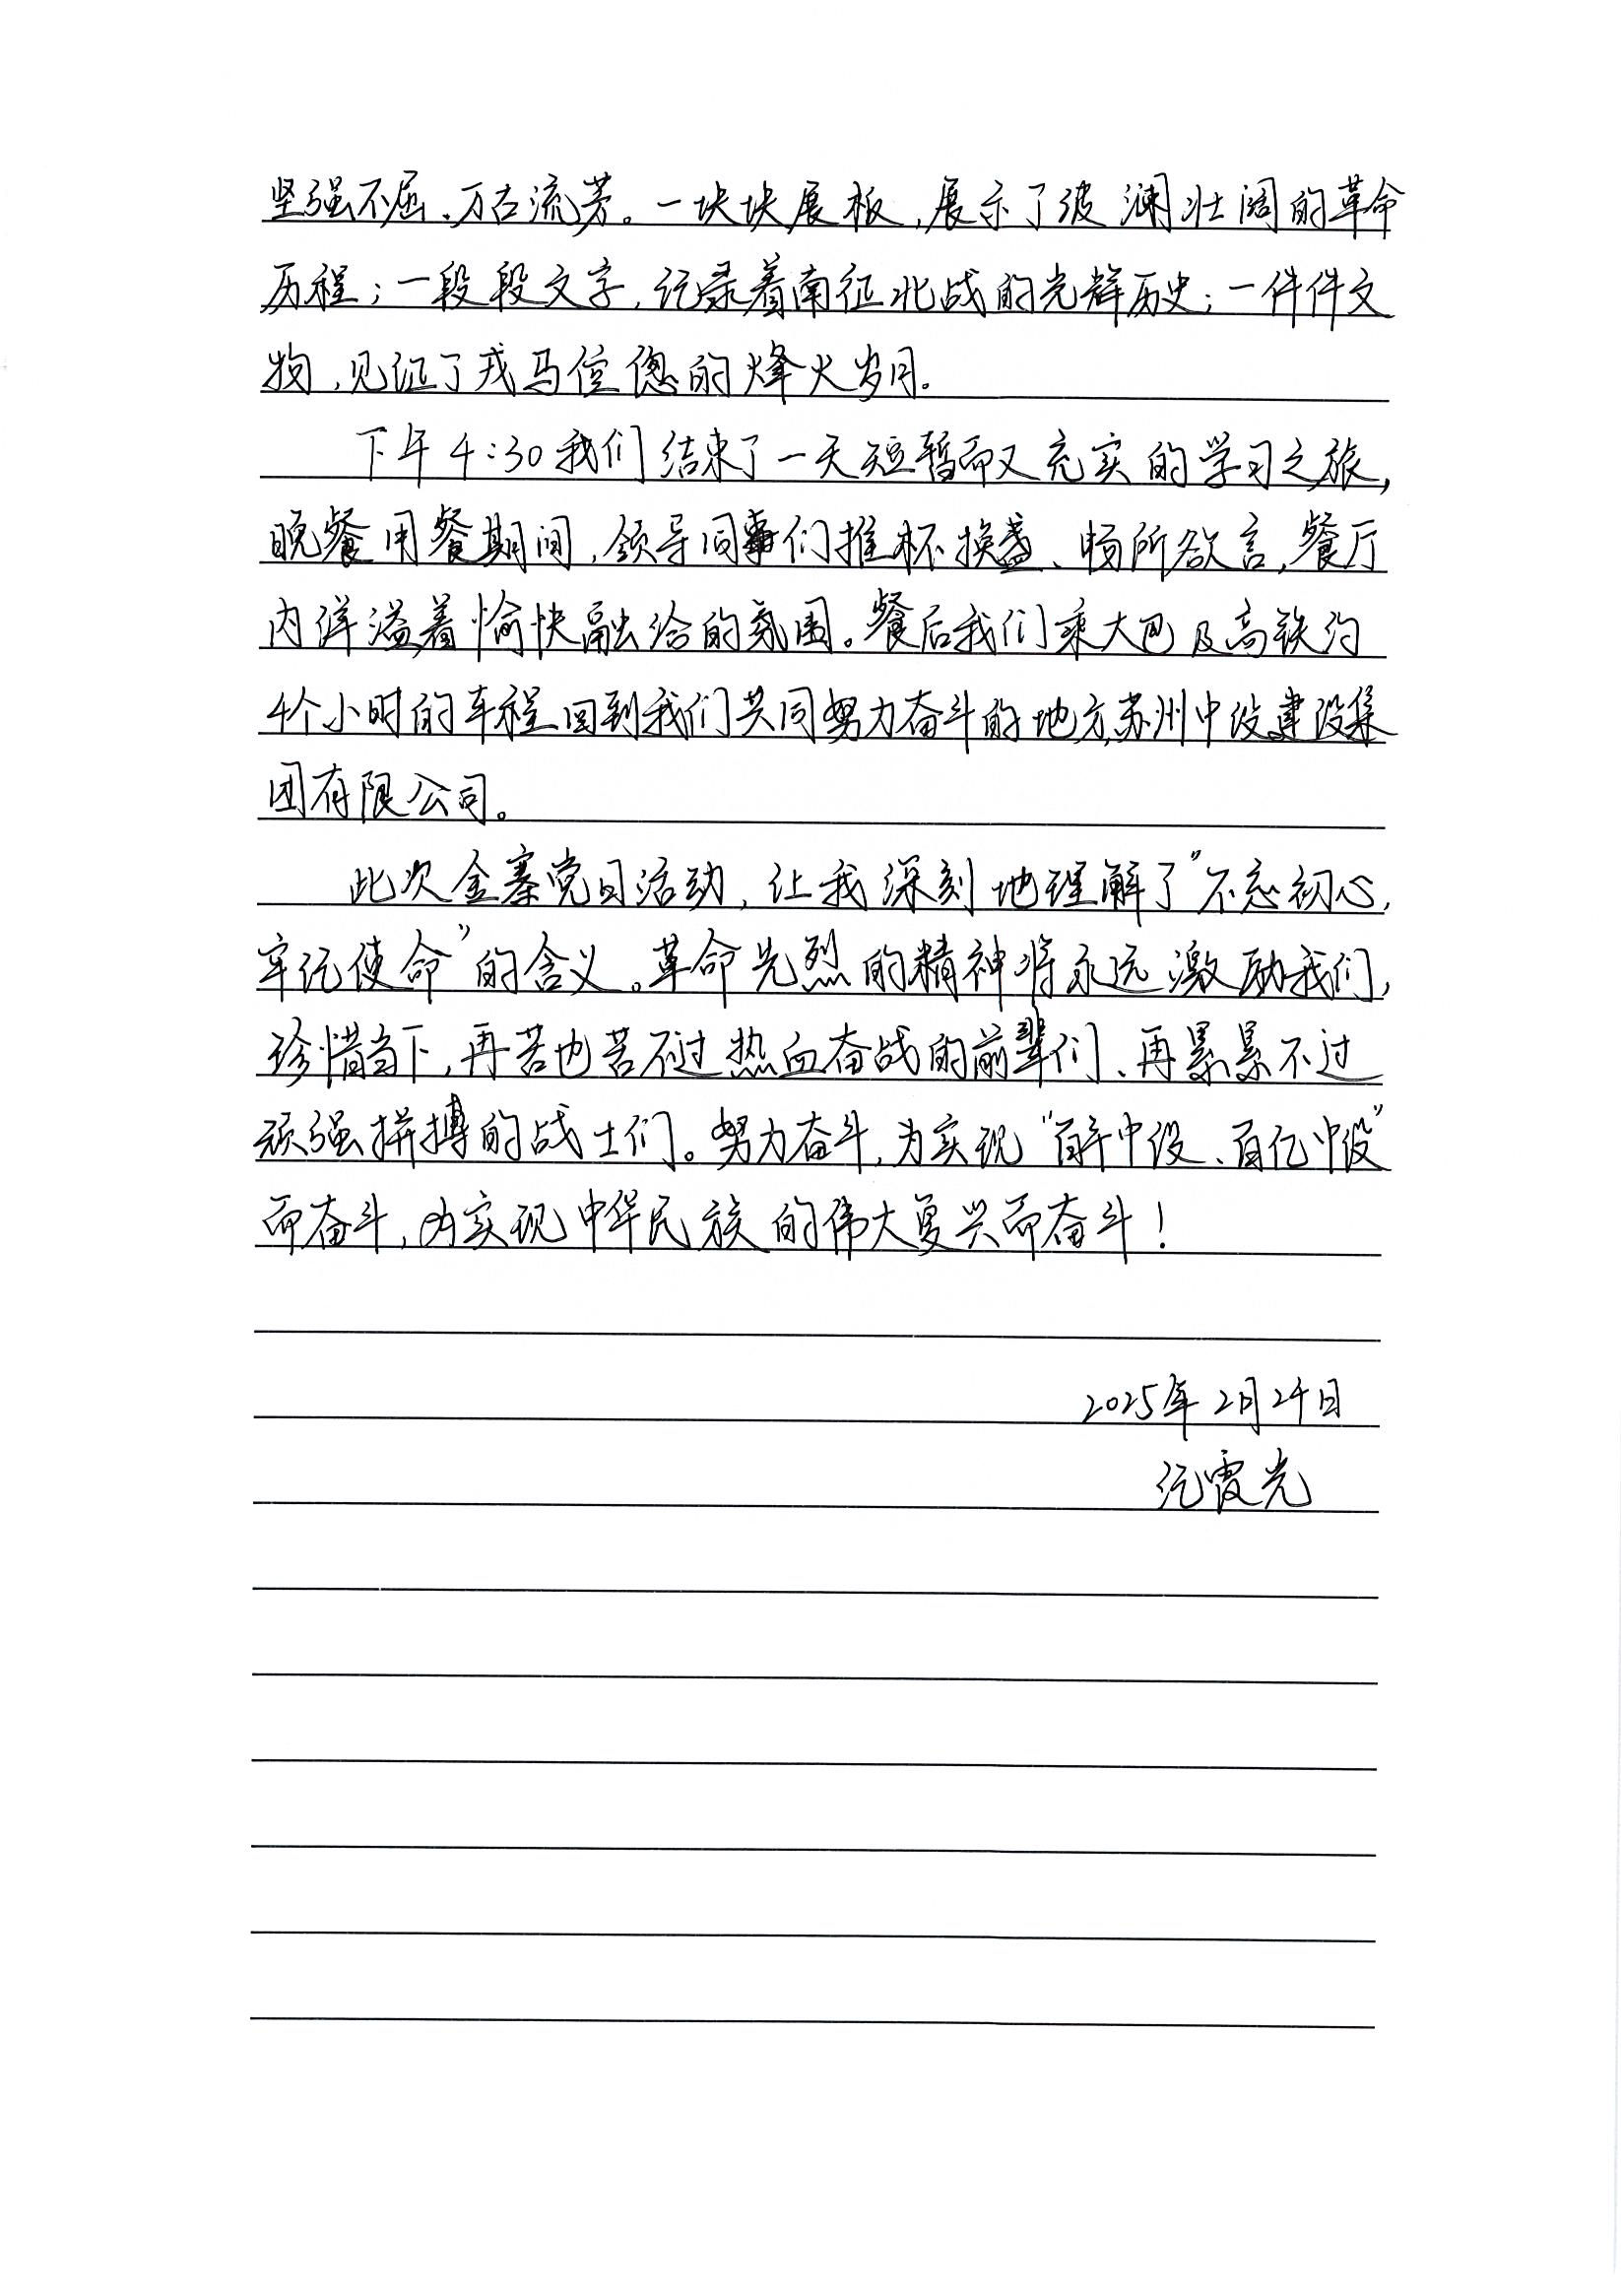 坚强不屈、万古流芳。一块块展板，展示了波澜壮阔的革命
历程；一段段文字，记录着南征北战的光辉历史；一件件文
物，见证了戎马倥偬的烽火岁月。
下午4:30我们结束了一天短暂而又充实的学习之旅，
晚餐用餐期间，领导同事们推杯换盏、畅所欲言，餐厅
内洋溢着愉快融洽的氛围。餐后我们乘大巴及高铁约
4个小时的车程回到我们共同努力奋斗的地方，苏州中设建设集
团有限公司。
此次金寨党日活动，让我深刻地理解了“不忘初心，
牢记使命”的含义。革命先烈的精神将永远激励我们，
珍惜当下，再苦也苦不过热血奋战的前辈们、再累累不过
顽强拼搏的战士们。努力奋斗，为实现“百年中设、百亿中设”
而奋斗，为实现中华民族的伟大复兴而奋斗！
2025年2月24日
霞光